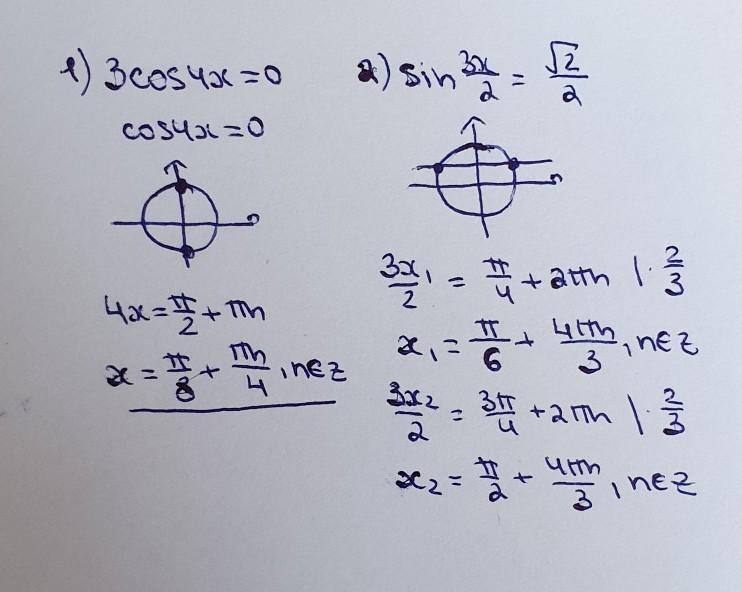 1) 3cos4x=0
cos4x=0
4x=π/2+πn
x=π/8+πn/4, n∈Z
2) sin 3x/2 = √2/2
3x₁/2 = π/4 + 2πn |· 2/3
x₁ = π/6 + 4πn/3, n∈Z
3x₂/2 = 3π/4 + 2πn |· 2/3
x₂ = π/2 + 4πn/3, n∈Z